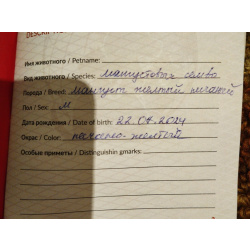 DESCRIPTIO
Имя животного / Petname:
Вид животного / Species: мангустовых семва
Порода / Breed: мангуст желтый
Пол / Sex: м
Дата рождения / Date of birth: 22.04.2024
Окрас / Color: песчано-желтый
Особые приметы / Distinguishin gmarks: